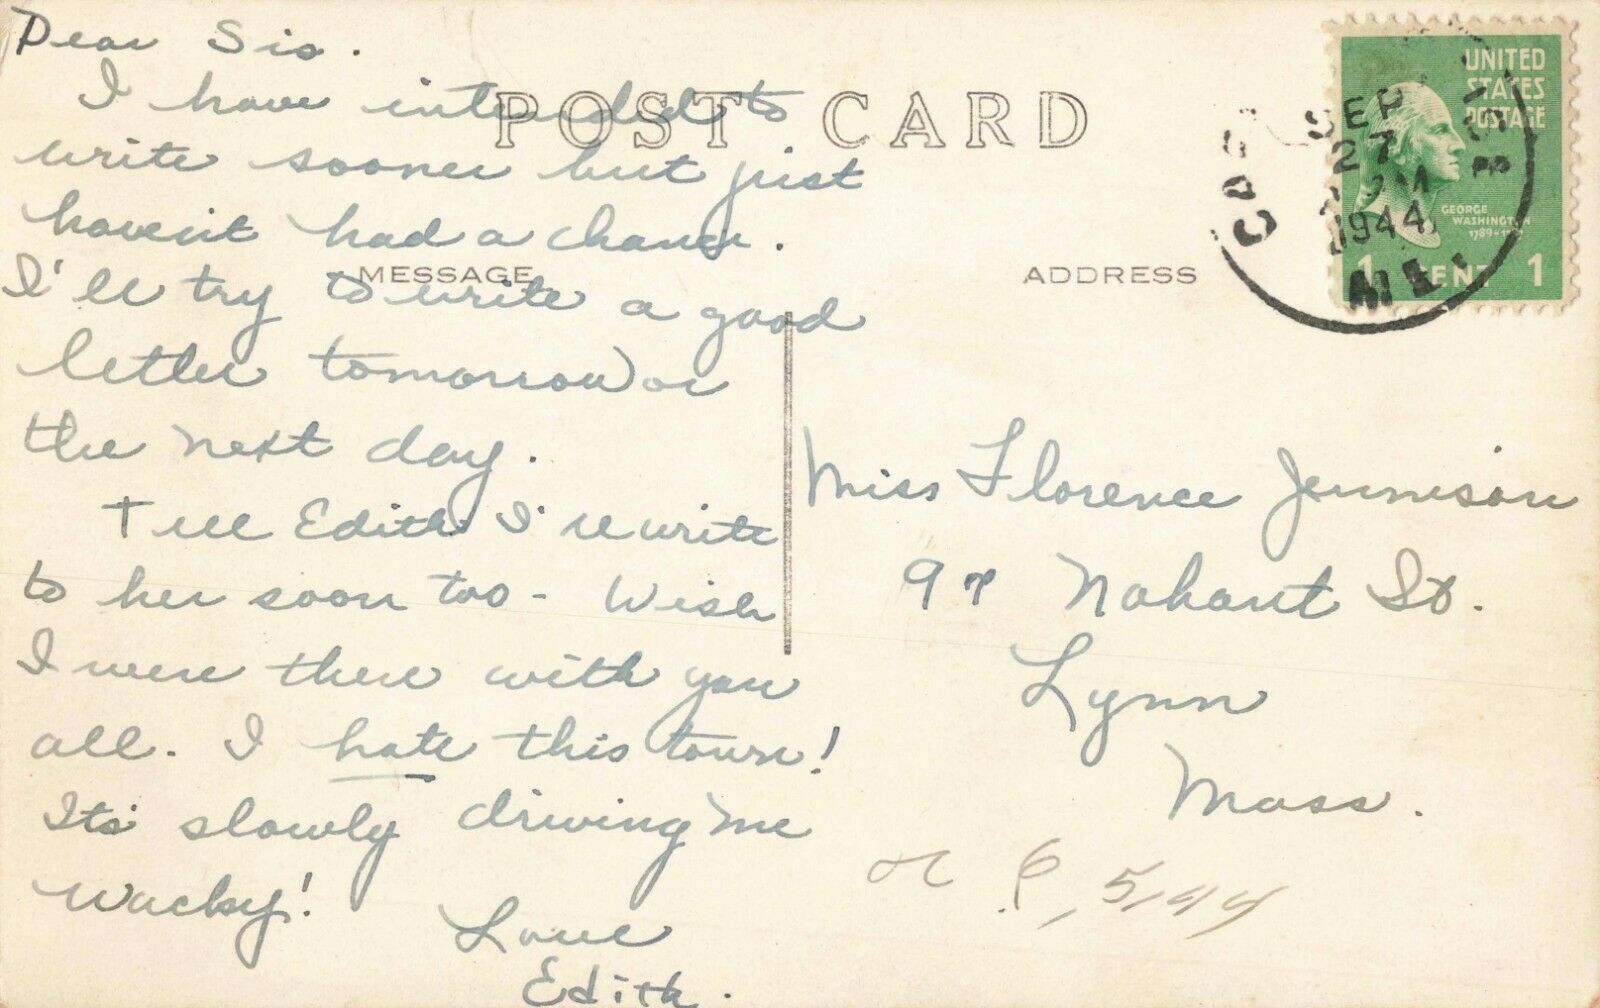 Dear Sis.
I have intended to
write sooner but just
haven't had a chance.
I'll try to write a good
letter tomorrow or
the next day.
Tell Edith I'll write
to her soon too - Wish
I were there with you
all. I hate this town!
Its slowly driving me
wacky!
Love
Edith.
POST CARD
MESSAGE
ADDRESS
UNITED
STATES
POSTAGE
GEORGE
WASHINGTON
1 CENT 1
SEP
27
1944
ME.
Miss Florence Jennison
97 Nahant St.
Lynn
Mass.